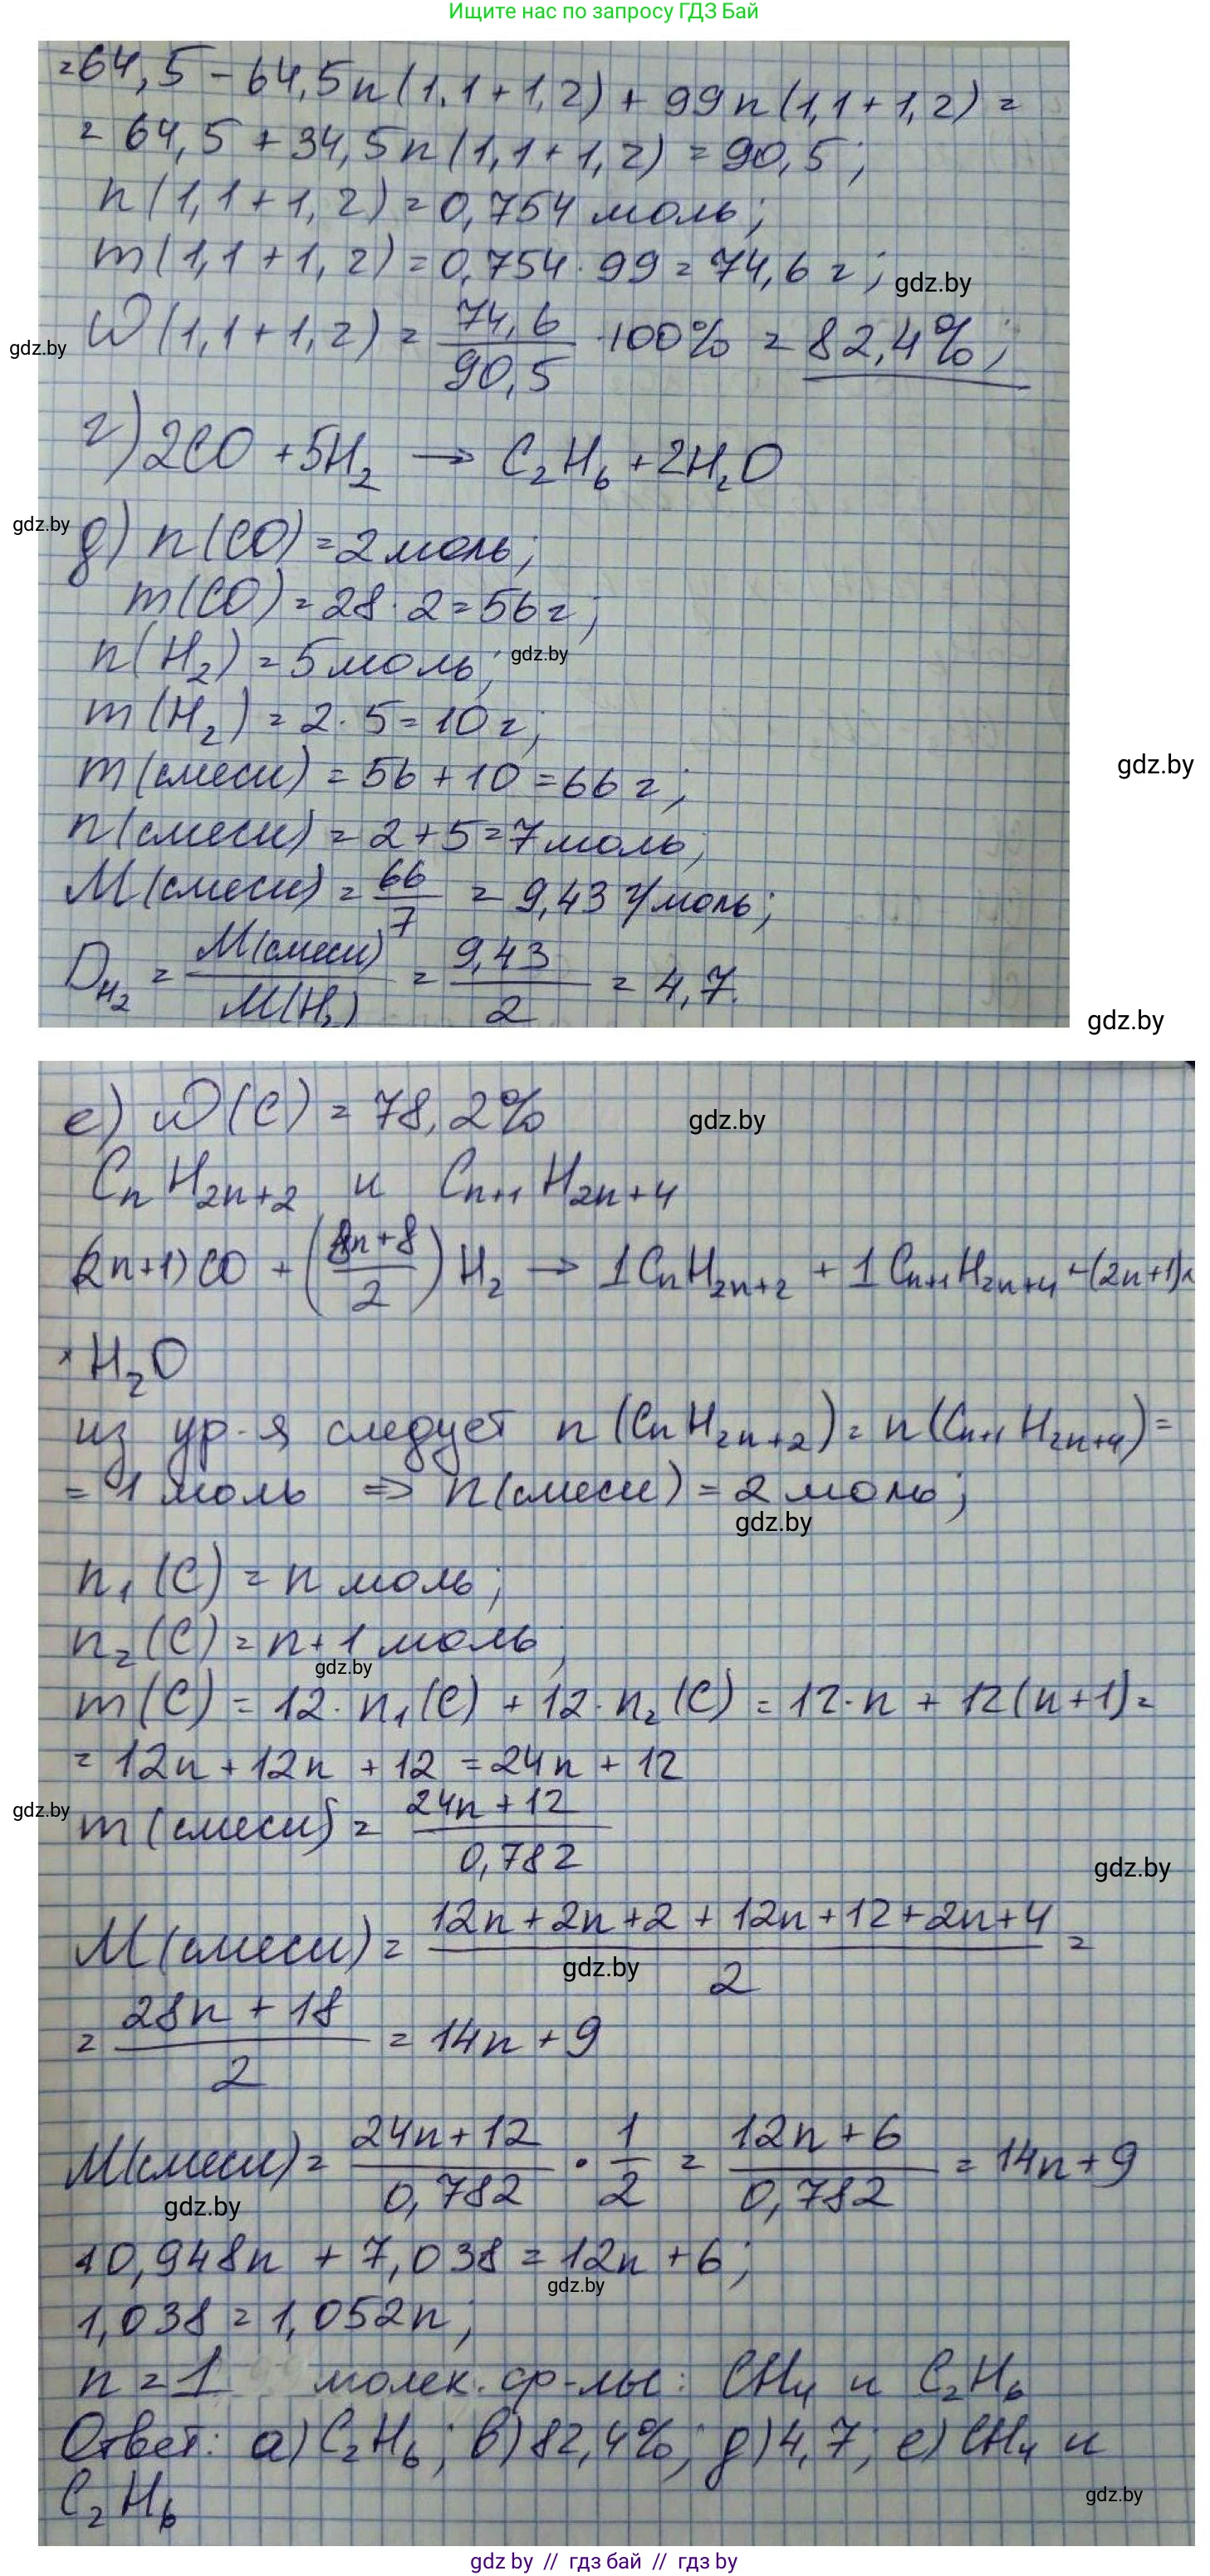 Ищите нас по запросу ГДЗ Бай
=64,5 - 64,5n(1,1+1,2) + 99n(1,1+1,2) =
= 64,5 + 34,5n(1,1+1,2) = 90,5;
n(1,1+1,2) = 0,754 моль;
m(1,1+1,2) = 0,754·99 = 74,6 г;
gdz.by
W(1,1+1,2) = 74,6/90,5 ·100% = 82,4%;
gdz.by
г) 2CO + 5H₂ → C₂H₆ + 2H₂O
gdz.by
д) n(CO) = 2 моль;
m(CO) = 28·2 = 56 г;
n(H₂) = 5 моль;
gdz.by
m(H₂) = 2·5 = 10 г;
m(смеси) = 56 + 10 = 66 г;
gdz.by
n(смеси) = 2 + 5 = 7 моль;
M(смеси) = 66/7 = 9,43 г/моль;
D_H₂ = M(смеси)/M(H₂) = 9,43/2 = 4,7.
gdz.by
е) W(C) = 78,2%
gdz.by
CₙH₂ₙ₊₂ и Cₙ₊₁H₂ₙ₊₄
(2n+1)CO + ((8n+8)/2)H₂ → 1CₙH₂ₙ₊₂ + 1Cₙ₊₁H₂ₙ₊₄ + (2n+1)×
×H₂O
из ур-я следует n(CₙH₂ₙ₊₂) = n(Cₙ₊₁H₂ₙ₊₄) =
= 1 моль ⇒ n(смеси) = 2 моль;
gdz.by
n₁(C) = n моль;
n₂(C) = n+1 моль;
gdz.by
m(C) = 12·n₁(C) + 12·n₂(C) = 12·n + 12(n+1) =
= 12n + 12n + 12 = 24n + 12
gdz.by
m(смеси) = (24n + 12)/0,782
gdz.by
M(смеси) = (12n + 2n + 2 + 12n + 12 + 2n + 4)/2 =
gdz.by
= (28n + 18)/2 = 14n + 9
M(смеси) = (24n + 12)/0,782 · 1/2 = (12n + 6)/0,782 = 14n + 9
gdz.by
10,948n + 7,038 = 12n + 6;
gdz.by
1,038 = 1,052n;
n = 1 молек. ф-лы: CH₄ и C₂H₆
Ответ: а) C₂H₆; в) 82,4%; д) 4,7; е) CH₄ и
C₂H₆
gdz.by
gdz by // гдз бай // гдз by